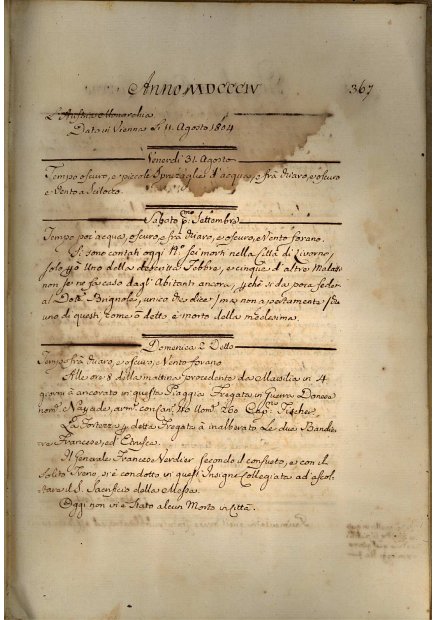 ANNO MDCCCIV 367
L'Austria Monarchia
Dato in Vienna Li 11. Agosto 1804
Venerdì 31. Agosto
Tempo oscuro, e piccole Spruzaglie d'acqua, e frà chiaro, e oscuro
e Vento a Scilocco.
Sabato p:mo Settembre
Tempo poi acqua, oscuro, e frà chiaro, e oscuro, e Vento forano.
Si sono contati oggi N.o sei morti nella Città di Livorno,
solo Uno della Febbre, e cinque d'altre
non se ne fà caso dagl'Abitanti ancora, si da poca fede
al Dott. Brignole, unico che dice
uno di questi, come ò detto è morto della medesima.
Domenica 2 Detto
Tempo frà chiaro, e oscuro, e Vento forano
Alle ore 8 della mattina procedente da Marsilia in 4
giorni à ancorato in questa Piaggia Fregata in Guerra Danese
nom.a Nayade, arm. con Can. 40 Uom. 260 Cap.no Fischer
La Fortezza, e detta Fregata à inalberato Le due Bandie
re Francese, ed Etrusca.
Il Generale Francese Verdier secondo il consueto, e con il
solito Treno si è condotto in quest'Insigne Collegiata ad ascol
tare il S. Sacrificio della Messa.
Oggi non vi è stato alcun Morto in Città.